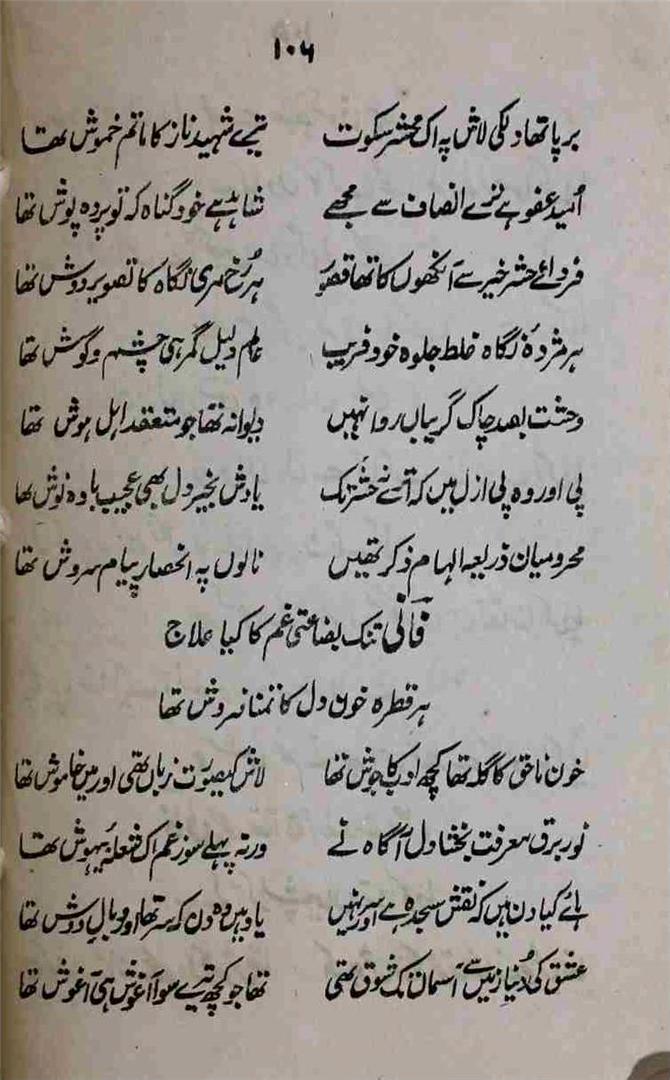 ۱۰۶
برپا تھا دل کی لاش پہ اک محشر سکوت تیرے شہید ناز کا ماتم خموش تھا
امید عفو ہے ترے انصاف سے مجھے شاہد ہے خود گناہ کہ تو پردہ پوش تھا
فردائے حشر خیر سے آنکھوں کا تھا قصور ہر رخ مری نگاہ کا تصویر دوش تھا
ہر مژدۂ نگاہ غلط جلوہ خود فریب عالم دلیل گمرہی چشم و گوش تھا
وحشت بصد چاک گریباں روا نہیں دیوانہ تھا جو معتقد اہل ہوش تھا
پی اور وہ پی ازل میں کہ آئے نہ حشر تک یادش بخیر دل بھی عجیب بادہ نوش تھا
محرومیاں ذریعہ الہام ذکر تھیں نالوں پہ انحصار پیام سروش تھا
فانی تنک بضاعتی غم کا کیا علاج
ہر قطرہ خون دل کا تمنا فروش تھا
خون ناحق کا گلہ تھا کچھ ادب کا جوش تھا لاش کی صورت زباں تھی اور میں خاموش تھا
نور برق معرفت بخشا دل آگاہ نے ورنہ پہلے سوز غم اک شعلۂ بیہوش تھا
ہائے کیا دن ہیں کہ نقش سجدہ ہے اور سر نہیں یاد ہیں وہ دن کہ سر تھا اور وبال دوش تھا
عشق کی دنیا زمیں سے آسماں تک شوق تھی تھا جو کچھ تیرے سوا آغوش ہی آغوش تھا